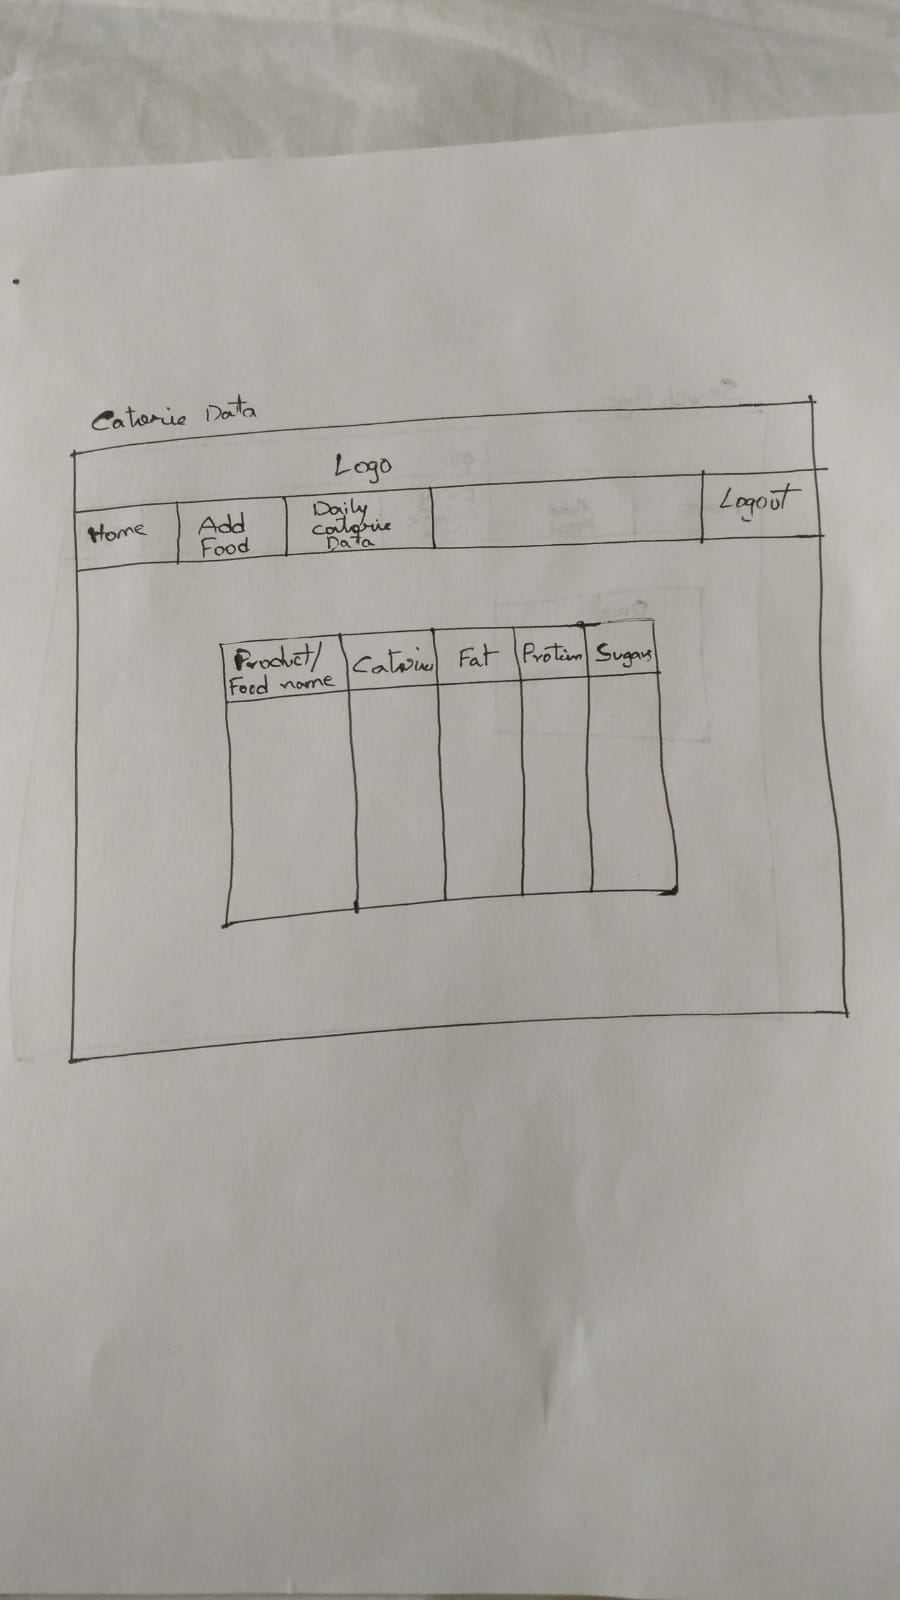 Calorie Data
Logo
Home
Add
Food
Daily
Calorie
Data
Logout
Product/
Food name
Calories
Fat
Protein
Sugars